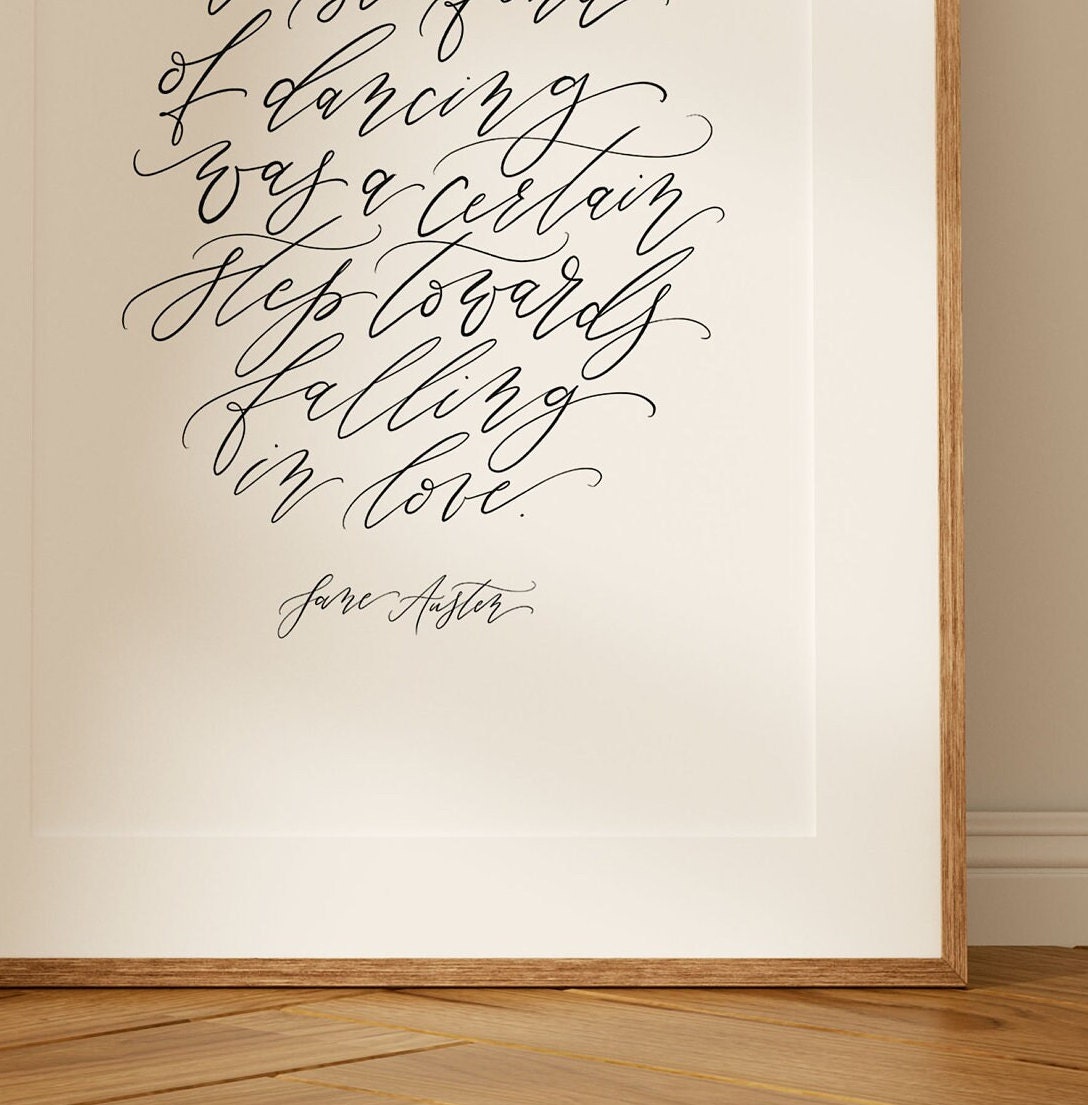 fond
of dancing
was a certain
step towards
falling
in love.
Jane Austen